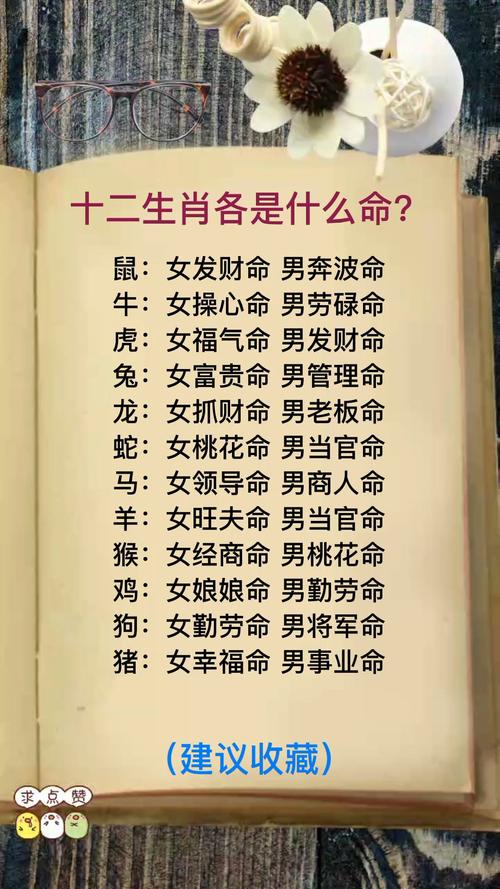 十二生肖各是什么命？
鼠：女发财命 男奔波命
牛：女操心命 男劳碌命
虎：女福气命 男发财命
兔：女富贵命 男管理命
龙：女抓财命 男老板命
蛇：女桃花命 男当官命
马：女领导命 男商人命
羊：女旺夫命 男当官命
猴：女经商命 男桃花命
鸡：女娘娘命 男勤劳命
狗：女勤劳命 男将军命
猪：女幸福命 男事业命
（建议收藏）
求点赞